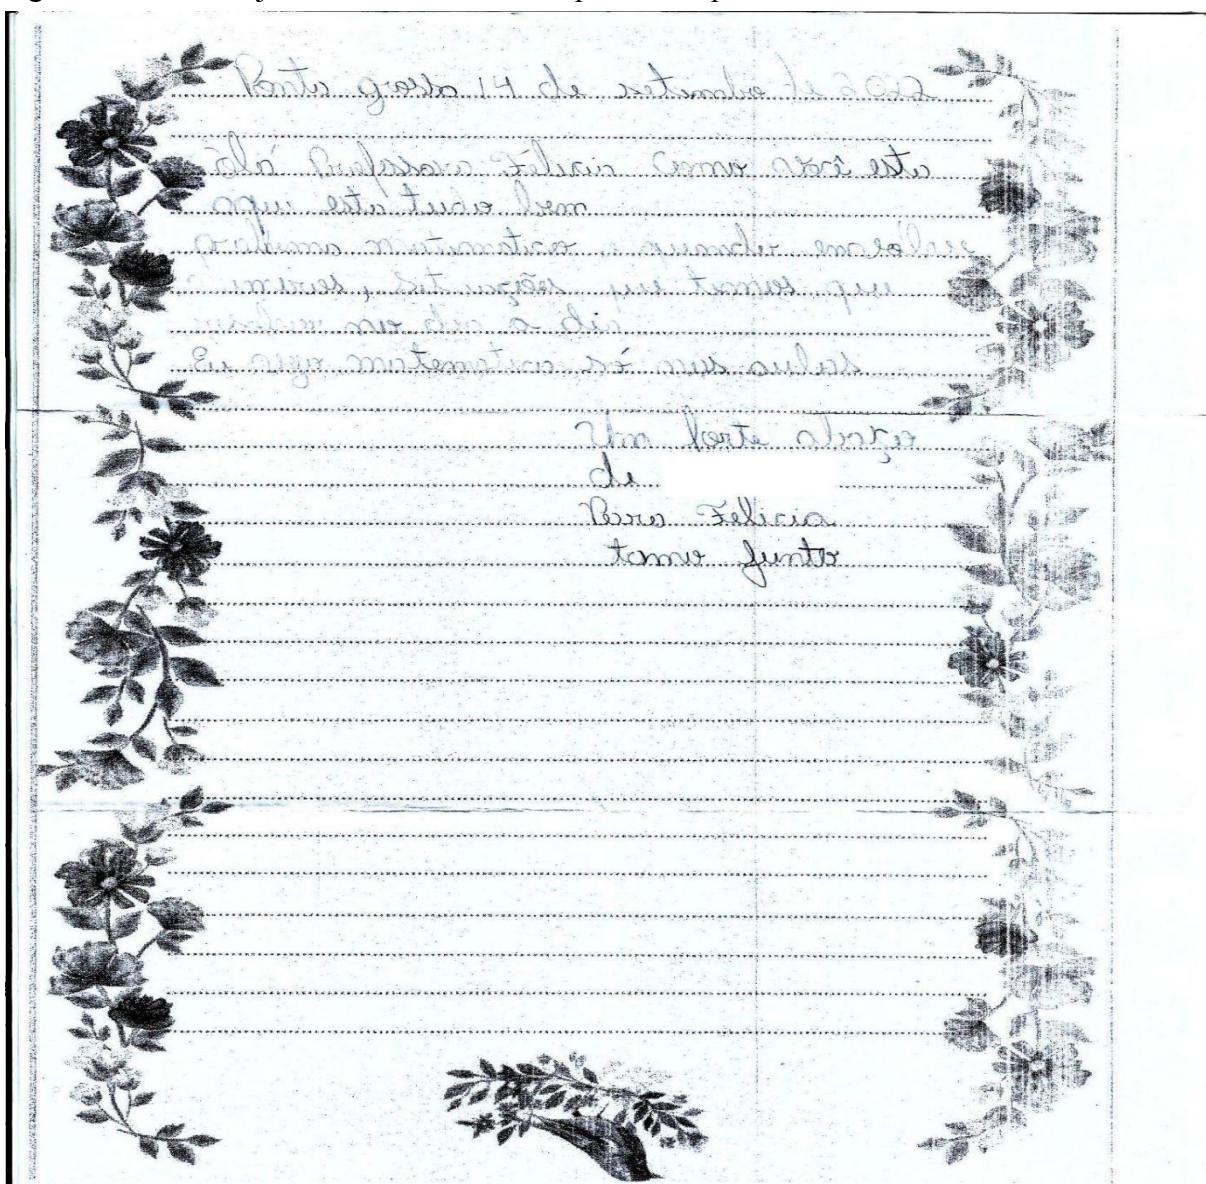 Ponta grossa 14 de setembro de 2022
Olá Professora Felicia como você esta
aqui esta tudo bem
problema matematico e quando envolve
numeros, situações que temos que
resolver no dia a dia
Eu vejo matematica só nas aulas
Um forte abraço
de
Para Felicia
tamo junto